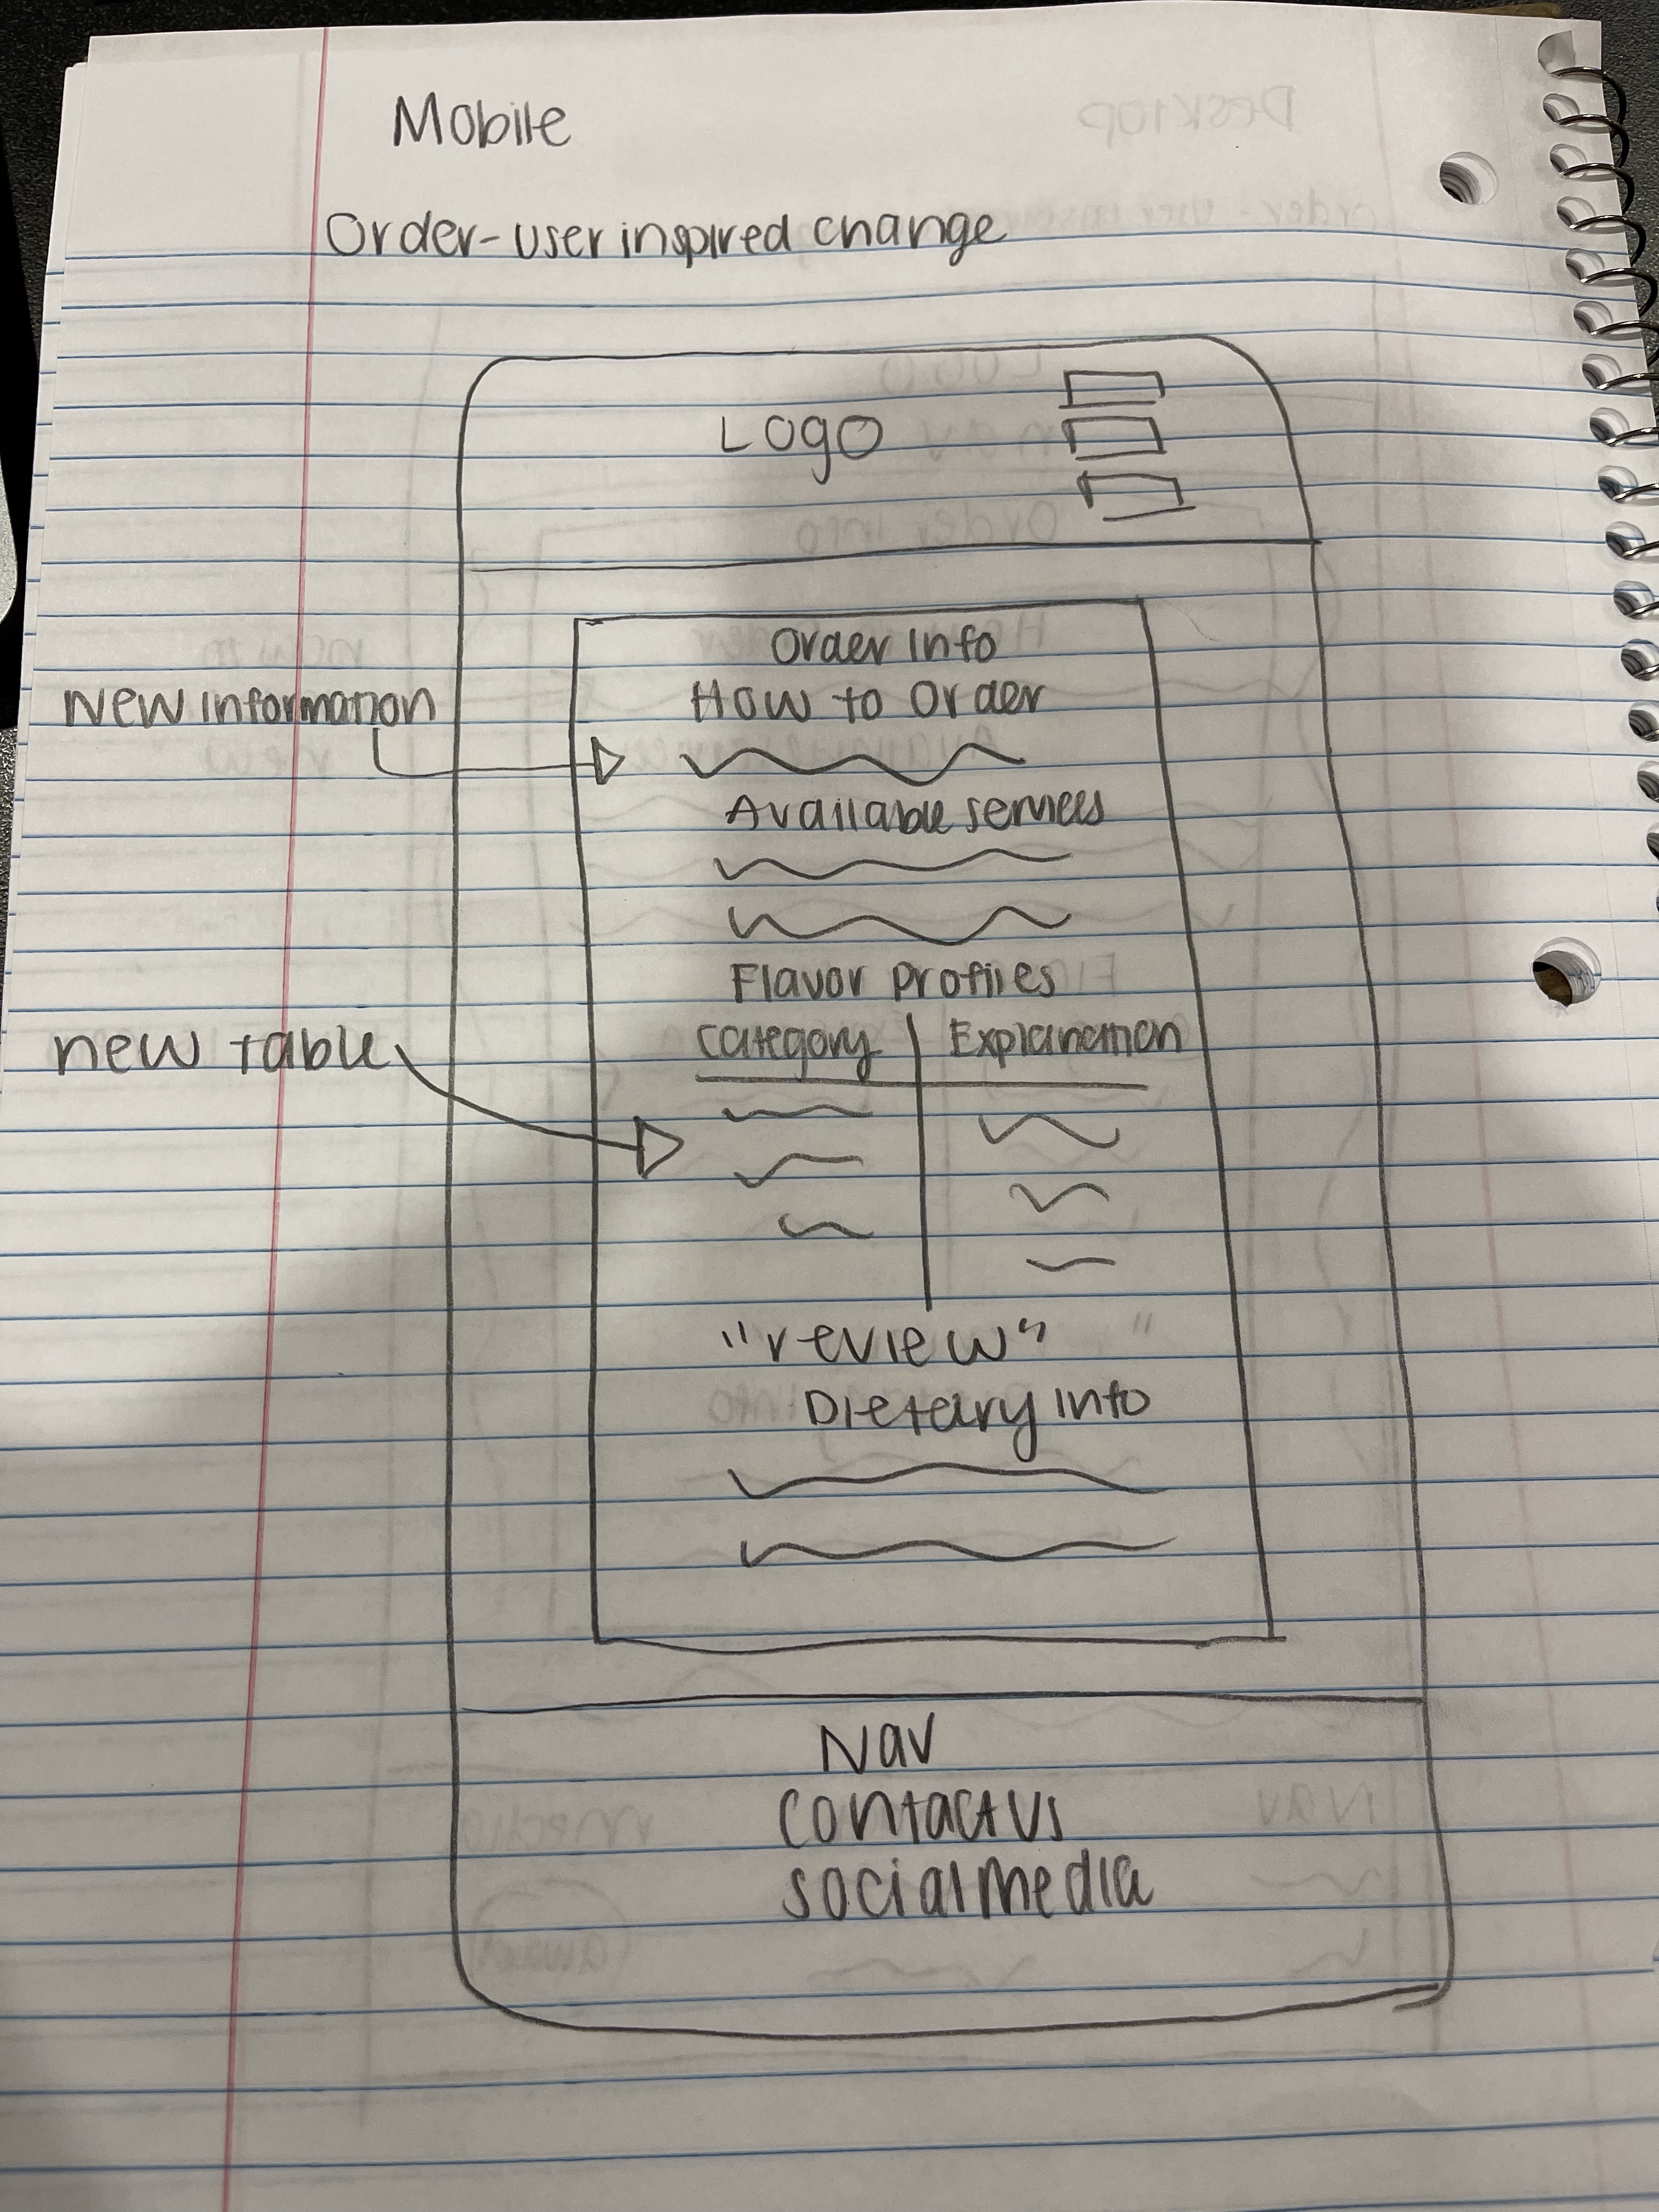 Mobile
Order-user inspired change
Logo
Order Info
How to Order
New information
Available services
Flavor Profiles
Category Explanation
new table
"review"
Dietary Info
Nav
Contact Us
social media